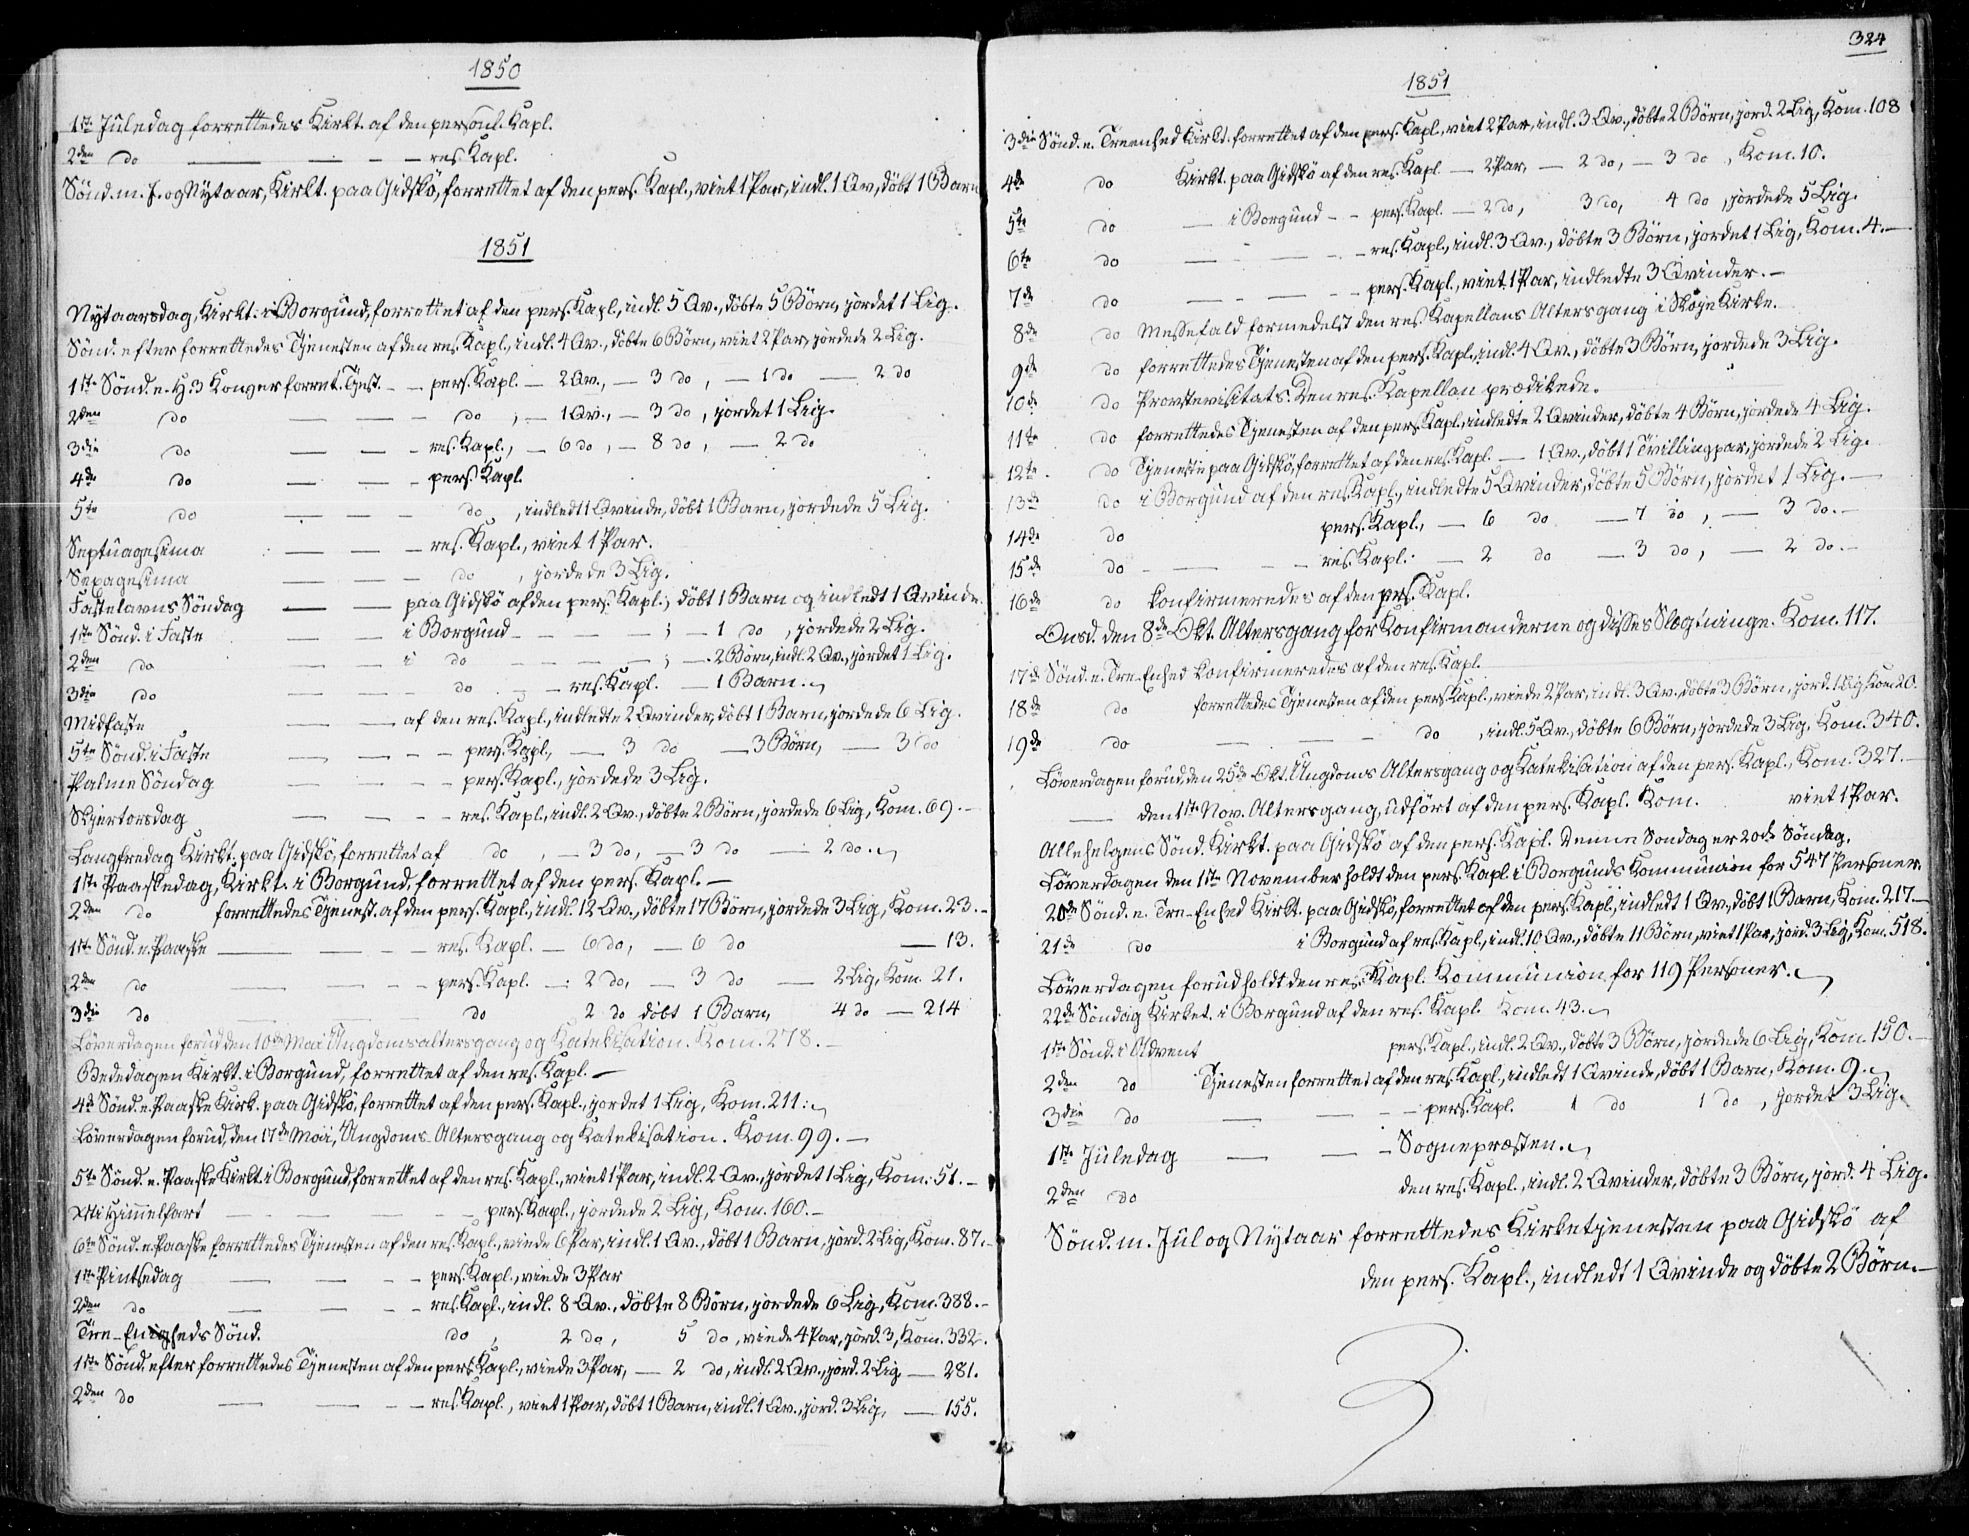 1850
1ste Juledag forrettedes Kirkt. af den personl. Kapl.
2den do — — — — res. Kapl.
Sönd. m. J. og Nytaar, Kirkt. paa Gidskö, forrettet af den pers. Kapl., viet 1 Par, indl. 1 Qv., döbt 1 Barn
1851
Nytaarsdag, Kirkt. i Borgund, forrettet af den pers. Kapl., indl. 5 Qv., döbte 5 Börn, jordet 1 Lig.
Sönd. efter forrettedes Tjenesten af den res. Kapl., indl. 4 Qv., döbte 6 Börn, viet 2 Par, jordede 2 Lig.
1ste Sönd. e. H. 3 Konger forret. Tjest. — — pers. Kapl. — 2 Qv., — 3 do, — 1 do — 2 do
2den do — — — do, — 1 Qv., — 3 do, jordet 1 Lig.
3die do — — — res. Kapl., — 6 do, — 8 do, — 2 do
4de do — — — pers. Kapl.
5te do — — — do, indledt 1 Qvinde, döbt 1 Barn, jordede 5 Lig.
Septuagesima — — — res. Kapl., viet 1 Par.
Sexagesima — — — do, jordede 3 Lig.
Fastelavns Söndag — — paa Gidskö af den pers. Kapl.; döbt 1 Barn og indledt 1 Qvinde.
1ste Sönd. i Faste — — i Borgund — — — ; — 1 do, jordede 2 Lig.
2den do — — i do — — — ; — 2 Börn, indl. 2 Qv., jordet 1 Lig.
3die do — — — do — res. Kapl. — 1 Barn.
Midfaste — — af den res. Kapl., indledte 2 Qvinder, döbt 1 Barn, jordede 6 Lig.
5te Sönd. i Faste — — — pers. Kapl., — 3 do — 3 Börn, — 3 do
Palme Söndag — — — pers. Kapl., jordede 3 Lig.
Skjertorsdag — — — res. Kapl., indl. 2 Qv., döbte 2 Börn, jordede 6 Lig, Kom. 69. —
Langfredag Kirkt. paa Gidskö, forrettet af do, — 3 do, — 3 do — 2 do.
1ste Paaskedag, Kirkt. i Borgund, forrettet af den pers. Kapl. —
2den do forrettedes Tjenest. af den pers. Kapl., indl. 12 Qv., döbte 17 Börn, jordede 3 Lig, Kom. 23. —
1ste Sönd. e. Paaske — — — res. Kapl. — 6 do, — 6 do — 13.
2den do — — — pers. Kapl. — 2 do, — 3 do — 2 Lig, Kom. 21.
3die do — — — do 2 do döbt 1 Barn, 4 do — 214
Löverdagen forud den 10de Mai Ungdomsaltersgang og Katekisation. Kom. 278. —
Bededagen Kirkt. i Borgund, forrettet af den res. Kapl. —
4de Sönd. e. Paaske Kirk. paa Gidskö, forrettet af den pers. Kapl., jordet 1 Lig, Kom. 211.
Löverdagen forud, den 17de Mai, Ungdoms-Altersgang og Katekisation. Kom. 99. —
5te Sönd. e. Paaske Kirkt. i Borgund, forrettet af den res. Kapl., viet 1 Par, indl. 2 Qv., jordet 1 Lig, Kom. 51. —
Xsti Himmelfart — — — — pers. Kapl., jordede 2 Lig, Kom. 160. —
6te Sönd. e. Paaske forrettedes Tjenesten af den res. Kapl., viede 6 Par, indl. 1 Qv., döbt 1 Barn, jord. 2 Lig, Kom. 87. —
1ste Pintsedag — — — pers. Kapl., viede 3 Par
2den do — — — res. Kapl., indl. 8 Qv., döbte 8 Börn, jordede 6 Lig, Kom. 388. —
Tre-Enigheds Sönd. do, 2 do, 5 do, viede 4 Par, jord. 3, Kom. 332.
1ste Sönd. efter forrettedes Tjenesten af den pers. Kapl., viede 3 Par, — 2 do, indl. 2 Qv., jord. 2 Lig — 281.
2den do — — — res. Kapl., viet 1 Par, döbt 1 Barn, indl. 1 Qv., jord. 3 Lig, — 155.
324
1851
3die Sönd. e. Treenhed Kirkt. forrettet af den pers. Kapl., viet 2 Par, indl. 3 Qv., döbte 2 Börn, jord. 2 Lig, Kom. 108
4de do Kirkt. paa Gidskö af den res. Kapl. — 2 Par, — 2 do, — 3 do, Kom. 10.
5te do — i Borgund — pers. Kapl. — 2 do, 3 do, 4 do, jordede 5 Lig.
6te do — — — res. Kapl., indl. 3 Qv., döbte 3 Börn, jordet 1 Lig, Kom. 4. —
7de do — — — pers. Kapl., viet 1 Par, indledte 3 Qvinder. —
8de do Messefald formedelst den res. Kapellans Altersgang i Skoje Kirke.
9de do forrettedes Tjenesten af den pers. Kapl., indl. 4 Qv., döbte 3 Börn, jordede 3 Lig.
10de do Provstevisitats. Den res. Kapellan prædikede.
11te do forrettedes Tjenesten af den pers. Kapl., indledte 2 Qvinder, döbte 4 Börn, jordede 4 Lig.
12te do Tjeneste paa Gidskö, forrettet af den res. Kapl. — 1 Qv., döbt 1 Tvillingpar, jordede 2 Lig.
13de do i Borgund af den res. Kapl., indledte 5 Qvinder, döbte 5 Börn, jordet 1 Lig. —
14de do pers. Kapl., — 6 do — 7 do, — 3 do. —
15de do — — — res. Kapl. — 2 do — 3 do, — 2 do. —
16de do konfirmeredes af den pers. Kapl.
Onsd. den 8de Okt. Altersgang for Konfirmanderne og disses Slægtninge. Kom. 117.
17de Sönd. e. Tre-Enhed konfirmeredes af den res. Kapl.
18de do forrettedes Tjenesten af den pers. Kapl., viede 2 Par, indl. 3 Qv., döbte 3 Börn, jord. 1 Lig, Kom. 20.
19de do — — — do, indl. 5 Qv., döbte 6 Börn, jordede 3 Lig, Kom. 340.
Löverdagen forud, den 25de Okt. Ungdoms Altersgang og Katekisation af den pers. Kapl., Kom. 327. —
— den 1ste Nov. Altersgang, udfört af den pers. Kapl. Kom. viet 1 Par.
Allehelgens Sönd. Kirkt. paa Gidskö af den pers. Kapl. Denne Söndag er 20de Söndag.
Löverdagen den 1ste November holdt den pers. Kapl. i Borgunds Kommunion for 547 Personer.
20de Sönd. e. Tre-Enhed Kirkt. paa Gidskö, forrettet af den pers. Kapl., indledt 1 Qv., döbt 1 Barn, Kom. 217. —
21de do i Borgund af res. Kapl., indl. 10 Qv., döbte 11 Börn, viet 1 Par, jord. 3 Lig, Kom. 518.
Löverdagen forud holdt den res. Kapl. Kommunion for 119 Personer.
22de Söndag Kirket. i Borgund af den res. Kapl. Kom. 43.
1ste Sönd. i Advent pers. Kapl., indl. 2 Qv., döbte 3 Börn, jordede 6 Lig, Kom. 150. —
2den do Tjenesten forrettet af den res. Kapl., indledt 1 Qvinde, döbt 1 Barn, Kom. 9.
3die do — — — pers. Kapl. 1 do 1 do, jordet 3 Lig.
1ste Juledag — — — Sognepræsten.
2den do den res. Kapl., indl. 2 Qvinder, döbte 3 Börn, jord. 4 Lig.
Sönd. m. Jul og Nytaar forrettedes Kirketjenesten paa Gidskö af
den pers. Kapl., indledt 1 Qvinde og döbte 2 Börn. —